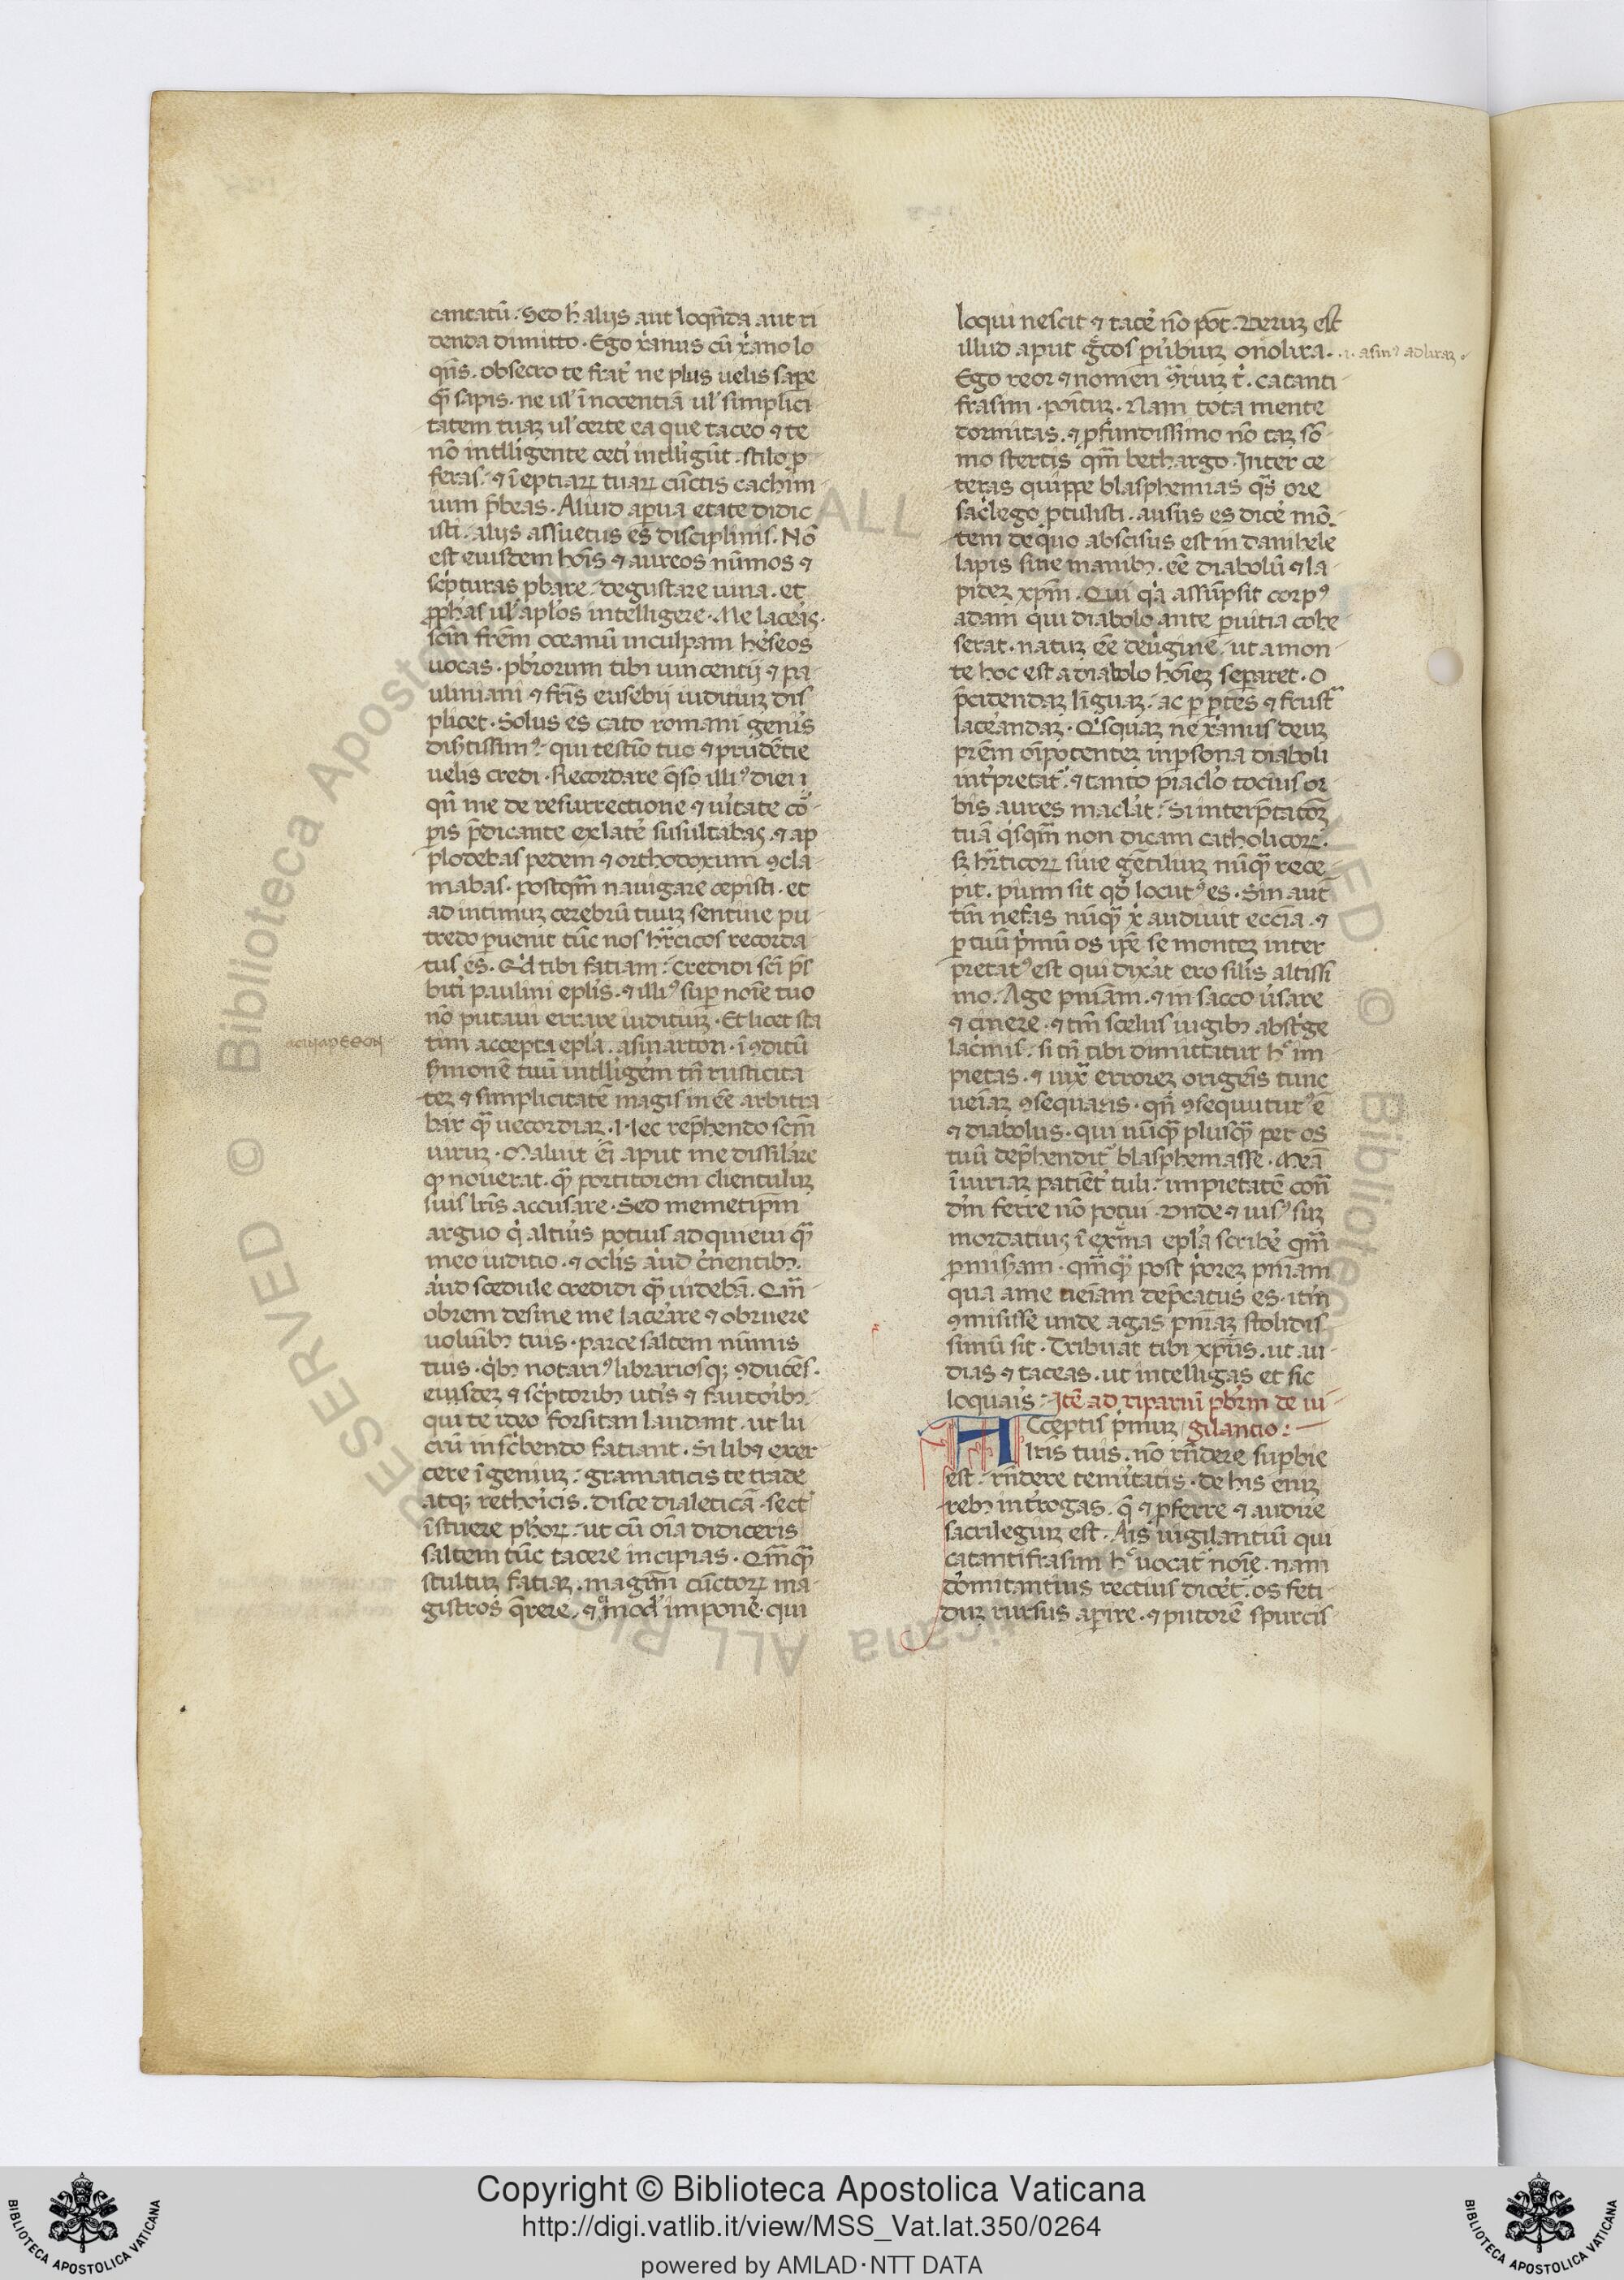 cantatū. Sed h̄ alijs aut loqn̄da aut ri
denda dimitto. Ego xr̄anus cū xr̄ano lo
qn̄s. obsecro te frat̄ ne plus uelis sap̄e
qȝ sapis. ne ul̄ īnocentiā ul̄ simplici
tatem tuaȝ ul̄ certe ea que taceo ⁊ te
nō intlligente ceti intlligūt. stilo p̄
feras. ⁊ īeptiaꝝ tuaꝝ cūctis cachin
um p̄beas. Aliud a parua etate didic
isti. alijs assuetus es disciplinis. Nō
est eiusdem hoīs ⁊ aureos nūmos ⁊
sc̄pturas p̄bare. degustare uina. et
p̄phas ul̄ apl̄os intelligere. Me lac̄eas.
sc̄m frēm oceanū in culpam hēseos
uocas. pb̄rorum tibi uincentij ⁊ pa
uliniani ⁊ frīs eusebij iuditiuȝ dis
plicet. Solus es cato romani gen̄is
dis̄tissim⁹. qui testīo tuo ⁊ prudētie
uelis credi. Recordare q̄so illi⁹ diei
qn̄ me de resurrectione ⁊ ūitate cō
pis p̄dicante ex late susultabas. ⁊ ap
plodebas pedem ⁊ orthodoxum ꝯcla
mabas. postqm̄ nauigare cepisti. et
ad intimuȝ cerebrū tuuȝ sentine pu
tredo p̄uenit tūc nos hr̄ēticos recorda
tus es. Qd̄ tibi fatiam. credidi sc̄i p̄s
biti paulini epl̄is. ⁊ illi⁹ sup noīe tuo
nō putaui errare iuditiuȝ. Et licet sta
tim accepta epl̄a. asinarton. īꝯditū
s̄monē tuū intlligēm tn̄ rusticita
teȝ ⁊ simplicitatē magis in eē arbitra
bar qȝ uecordiaȝ. Nec rep̄hendo sc̄m
uiruȝ. Maluit ēi aput me dissilāre
q̄ nouerat. qȝ portitorem clientuluȝ
suis lr̄is accusare. Sed memetip̄m
arguo q̄ altius potius adquieui qȝ
meo iuditio. ⁊ oc̄lis aīud c̄nentibȝ.
aīud scedule credidi qȝ uidebā. Qm̄
obrem desine me lac̄eare ⁊ obruere
uolūibȝ tuis. parce saltem nūmis
tuis. qībȝ notari⁹ librariosqȝ ꝯducēs.
eiusdeȝ ⁊ sc̄ptoribȝ utis ⁊ fautoībȝ.
qui te ideo forsitan laudant. ut lu
crū in sc̄bendo fatiant. Si libȝ exer
cere īgeniuȝ. gramaticis te trade
atqȝ rethoīcis. disce dialeticā. sect̄
īstuere ph̄oꝝ. ut cū oīa didiceris
saltem tūc tacere incipias. Qm̄qȝ
stultuȝ fatiaȝ. magr̄m cūctoꝝ ma
gistros q̄rere. ⁊ ei mod̄ imponē. qui
loqui nescit ⁊ tac̄e nō pōt. Veruȝ est
illud aput ḡcos pūbiuȝ onolira.
.i. asin⁹ ad liraȝ.
Ego reor ⁊ nomen ꝯ̄rium t̄. catanti
frasim. poītuȝ. Nam tota mente
dormitas. ⁊ p̄fundissimo nō taȝ sō
mo stertis qm̄ lethargo. Inter ce
teras quippe blasphemias qs̄ ore
sac̄lego p̄tulisti. ausus es dic̄e mō
tem de quo abscisus est in danihele
lapis sine manibȝ. eē diabolū ⁊ la
pideȝ xp̄m. Qui qa assūpsit corp⁹
adam qui diabolo ante p uitia cohe
serat. natuȝ eē de ūgine. ut a mon
te hoc est a diabolo hōieȝ separet. O
p̄citendaȝ līguaȝ. ac p p̄tes ⁊ frust̄
lac̄eandaȝ. Qīsquaȝ ne xr̄anus deuȝ
pr̄em oīpotenteȝ in psona diaboli
int̄pretat̄. ⁊ tanto piaclo tocius or
bis aures mac̄lat. Si interp̄tatōȝ
tuā qīsqm̄ non dicam catholicoꝝ.
sȝ hr̄ticoꝝ siue gētiliuȝ nūqȝ rece
pit. pium sit qd̄ locut⁹ es. Sin aut̄
tm̄ nefas nūqȝ x̄ audiuit eccīa. ⁊
p tuū p̄mū os ip̄e se monteȝ inter
pretat⁹ est qui dixat ero silīs altissi
mo. Age pn̄iam. ⁊ in sacco ūsare
⁊ cinere. ⁊ tm̄ scelus iugibȝ abst̄ge
lac̄mis. si tn̄ tibi dimittatur h⁹ im
pietas. ⁊ iux̄ erroreȝ origenīs tunc
ueīaȝ ꝯsequaris. qn̄ ꝯsequutur⁹ ē
⁊ diabolus. qui nūqȝ plusqȝ per os
tuū dep̄hendit̄ blasphemasse. Meā
īiuriaȝ patiēt̄ tuli. impietatē con̄
dm̄ ferre nō potui. Vnde ⁊ uis⁹ suȝ
mordatiuȝ ī ext̄ma epl̄a scribē qm̄
p̄mis̄am. qm̄qȝ post p̄oreȝ pn̄iam
qua a me ueīam dep̄catus es. itm̄
ꝯmisisse unde agas pn̄iaȝ stolidis
simū sit. Tribuat tibi xp̄us. ut au
dias ⁊ taceas. ut intelligas et sic
loquaīs. Itē ad ripariū pb̄rm de ui
ACceptis p̄muȝ gilantio.
lr̄is tuis. nō rn̄dere supbie
est. rn̄dere temītatis. de his eniȝ
rebȝ int̄rogas. q̄ ⁊ pferre ⁊ audire
sacrilegiuȝ est. Ais uigilantiū qui
catantifrasim h⁹ uocat̄ noīe. nam
domitantius rectius dicēt. os feti
duȝ rursus apire. ⁊ putorē spurcis